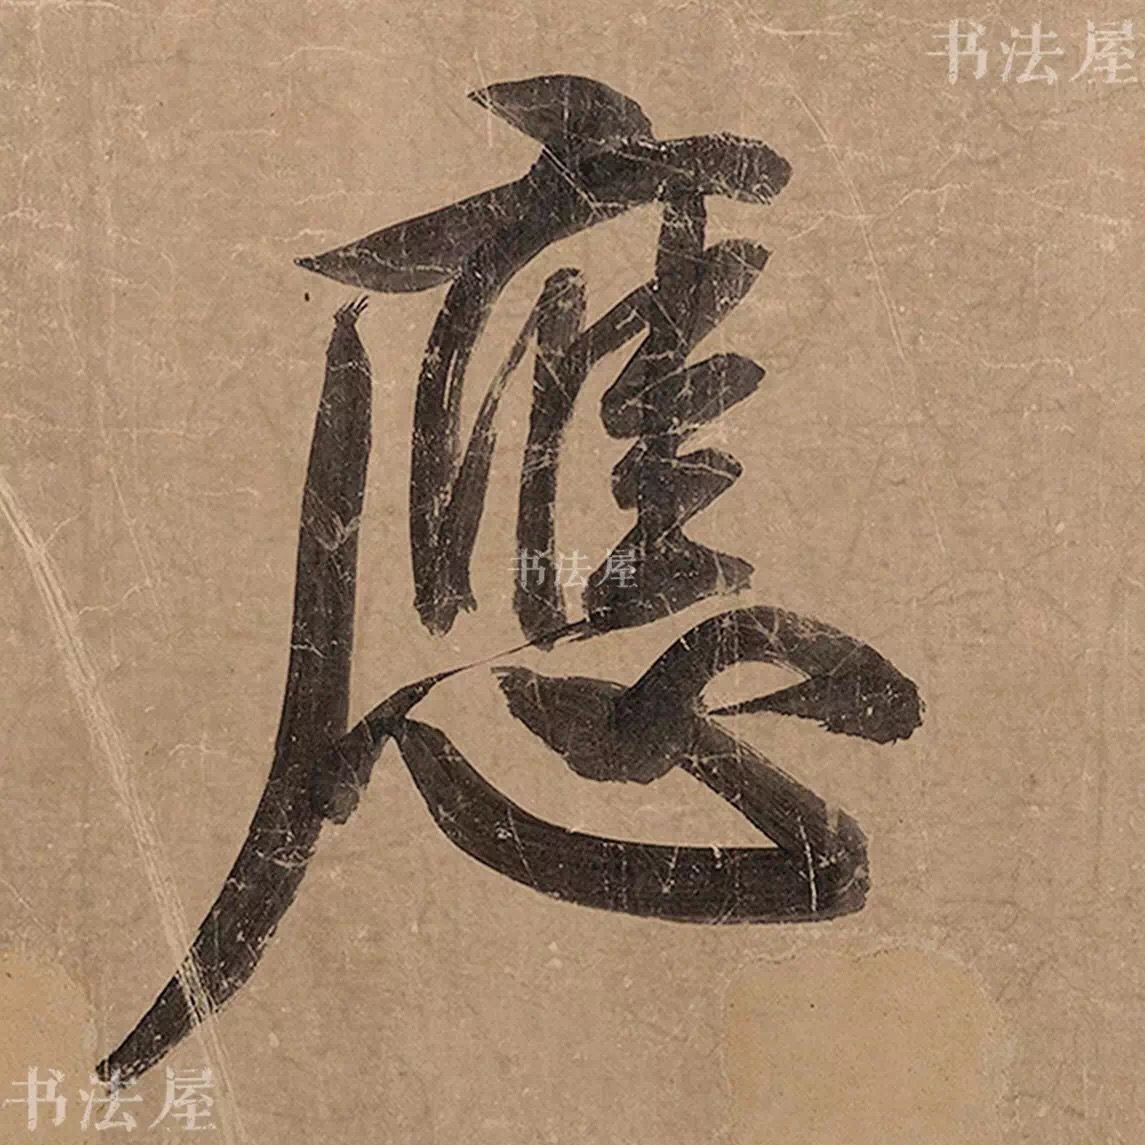 书法屋
應
书法屋
书法屋